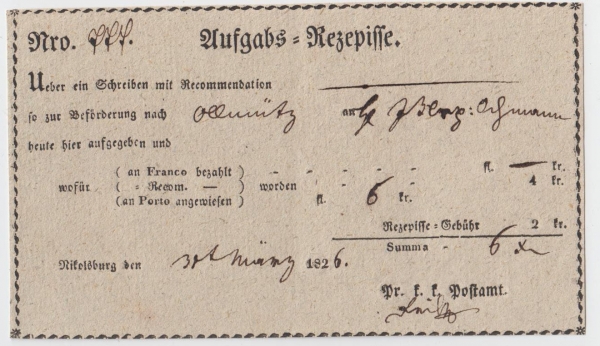 Nro. Aufgabs-Rezepisse.
Ueber ein Schreiben mit Recommendation
so zur Beförderung nach Ollmütz an
heute hier aufgegeben und
( an Franco bezahlt ) - - - - fl. — kr.
wofür ( - Recom. — ) worden 4 kr.
(an Porto angewiesen ) fl. 6 kr.
Rezepisse-Gebühr 2 kr.
Summa - 6 x
Nikolsburg den März 1826.
Pr. k. k. Postamt.